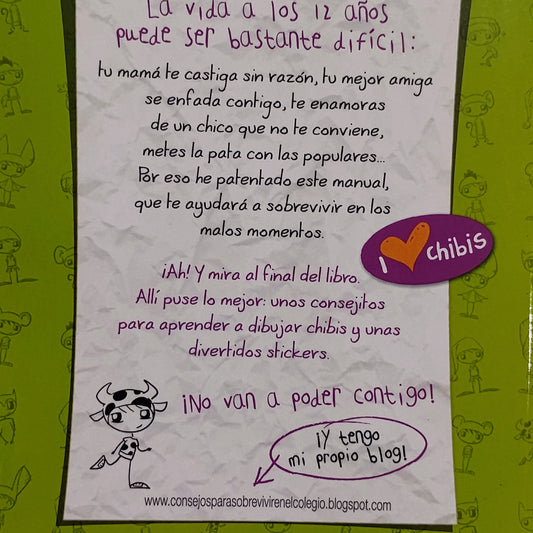 La vida a los 12 años
puede ser bastante difícil:
tu mamá te castiga sin razón, tu mejor amiga
se enfada contigo, te enamoras
de un chico que no te conviene,
metes la pata con las populares...
Por eso he patentado este manual,
que te ayudará a sobrevivir en los
malos momentos.
I chibis
¡Ah! Y mira al final del libro.
Allí puse lo mejor: unos consejitos
para aprender a dibujar chibis y unas
divertidos stickers.
¡No van a poder contigo!
¡Y tengo
mi propio blog!
www.consejosparasobrevivirenelcolegio.blogspot.com